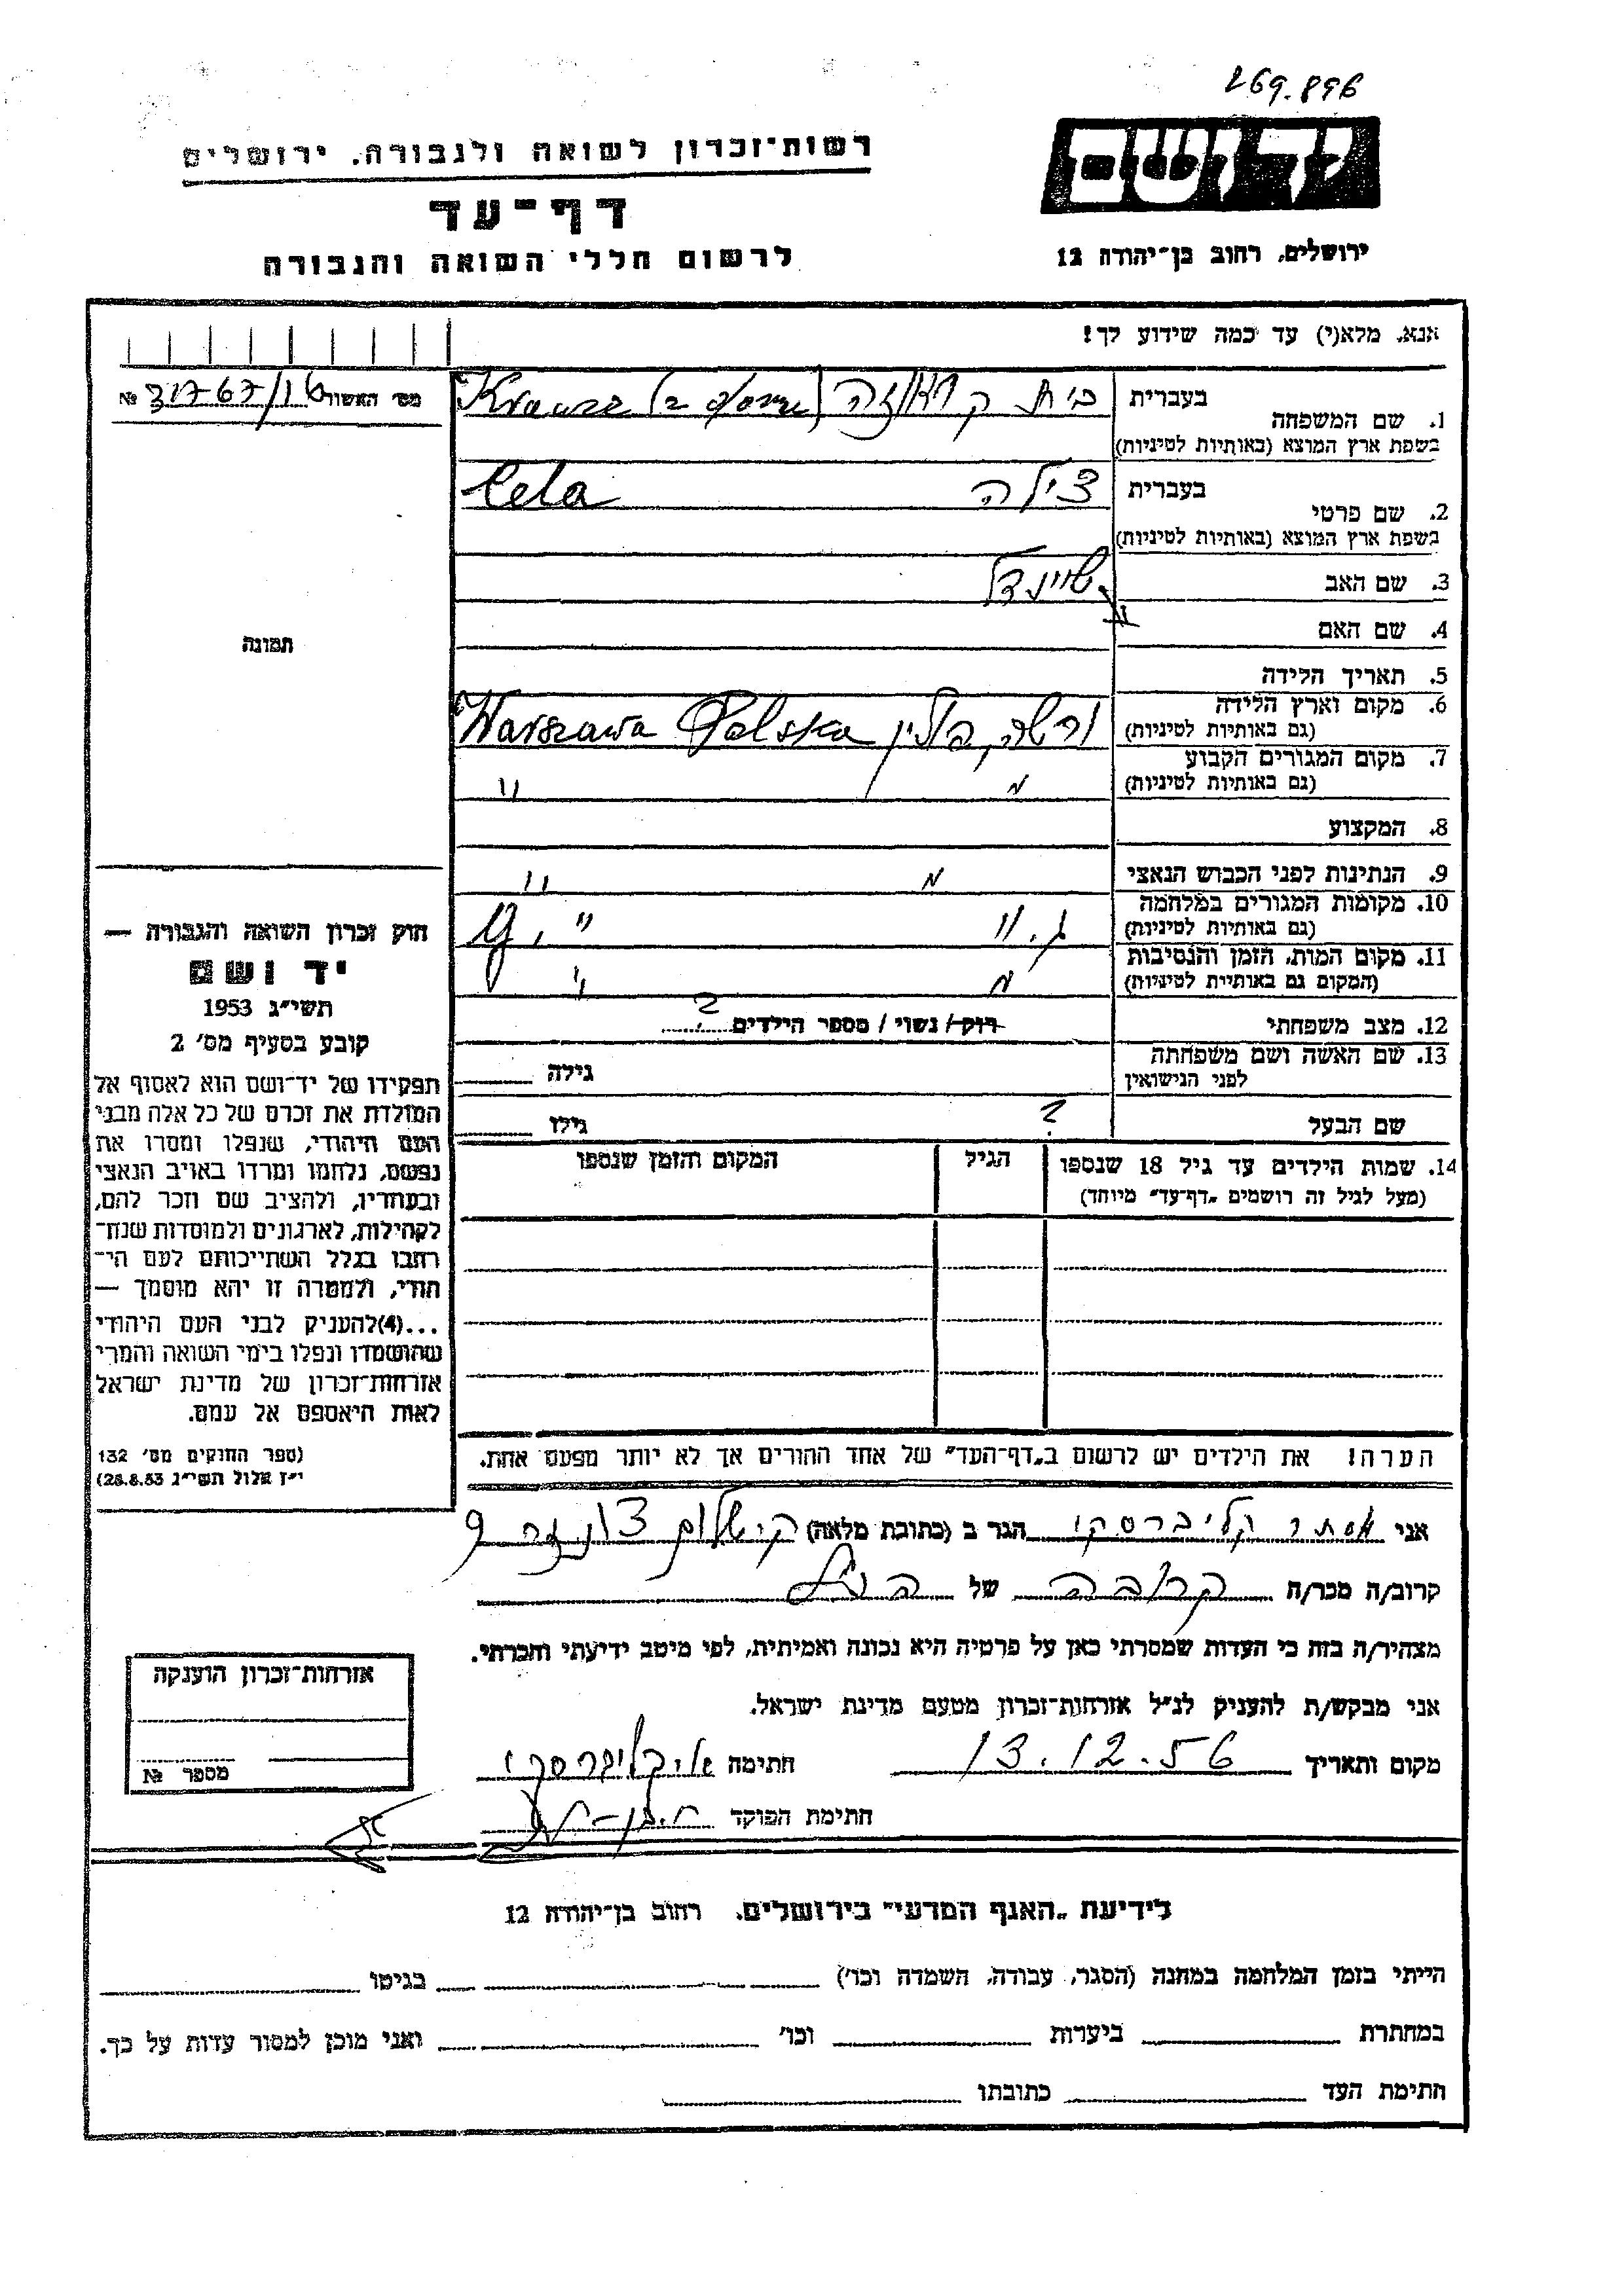 269.896
יד ושם
רשות־זכרון לשואה ולגבורה, ירושלים
דף־עד
לרשום חללי השואה והגבורה
ירושלים, רחוב בן־יהודה 12
אנא, מלא(י) עד כמה שידוע לך!
מס' האשור 31767/16 №
1. שם המשפחה
בעברית בית קראוזה
בשפת ארץ המוצא (באותיות לטיניות)
Krauze (z domu)
2. שם פרטי
בעברית צילה Cela
בשפת ארץ המוצא (באותיות לטיניות)
3. שם האב שיינדל
4. שם האם
תמונה
5. תאריך הלידה
6. מקום וארץ הלידה
(גם באותיות לטיניות)
ורשה, פולין Warszawa Polska
7. מקום המגורים הקבוע
(גם באותיות לטיניות) " "
8. המקצוע
9. הנתינות לפני הכבוש הנאצי " "
10. מקומות המגורים במלחמה
(גם באותיות לטיניות) ג. " " , g
11. מקום המות, הזמן והנסיבות
(המקום גם באותיית לטיניות) " "
12. מצב משפחתי רוק / נשוי / מספר הילדים ?
13. שם האשה ושם משפחתה
לפני הנישואין
גילה
שם הבעל ? גילו
14. שמות הילדים עד גיל 18 שנספו
(מעל לגיל זה רושמים „דף־עד" מיוחד)
הגיל
המקום והזמן שנספו
חוק זכרון השואה והגבורה —
יד ושם
תשי״ג 1953
קובע בסעיף מס' 2
תפקידו של יד־ושם הוא לאסוף אל
המולדת את זכרם של כל אלה מבני
העם היהודי, שנפלו ומסרו את
נפשם, נלחמו ומרדו באויב הנאצי
ובעוזריו, ולהציב שם וזכר להם,
לקהילות, לארגונים ולמוסדות שנח־
רבו בגלל השתייכותם לעם הי־
הודי, ולמטרה זו יהא מוסמך —
...(4)להעניק לבני העם היהודי
שהושמדו ונפלו בימי השואה והמרי
אזרחות־זכרון של מדינת ישראל
לאות היאספם אל עמם.
(ספר החוקים מס' 132
י״ז אלול תשי״ג 28.8.53)
הערה! את הילדים יש לרשום ב„דף־העד" של אחד ההורים אך לא יותר מפעם אחת.
אני אסתר קליברסקי הגר ב (כתובת מלאה) 9
קרוב/ה מכר/ה קרובה של הנ״ל
מצהיר/ה בזה כי העדות שמסרתי כאן על פרטיה היא נכונה ואמיתית, לפי מיטב ידיעתי והכרתי.
אני מבקש/ת להעניק לנ״ל אזרחות־זכרון מטעם מדינת ישראל.
מקום ותאריך 13.12.56 חתימה א.קליברסקי
חתימת הפוקד
אזרחות־זכרון הוענקה
מספר №
לידיעת „האגף המדעי" בירושלים, רחוב בן־יהודה 12
הייתי בזמן המלחמה במחנה (הסגר, עבודה, השמדה וכו') בגיטו
במחתרת ביערות וכו' ואני מוכן למסור עדות על כך.
חתימת העד כתובתו